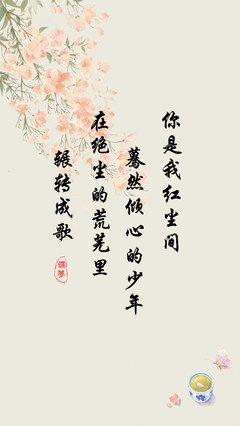 你是我红尘间
蓦然倾心的少年
在绝尘的荒芜里
辗转成歌